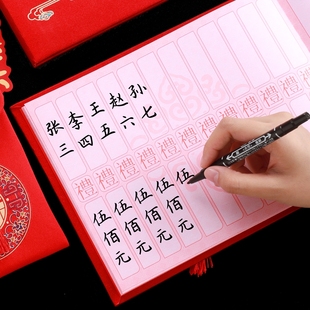 张三
禮
伍佰元
李四
禮
伍佰元
王五
禮
伍佰元
赵六
禮
伍佰元
孙七
禮
伍
禮
禮
禮
禮
禮